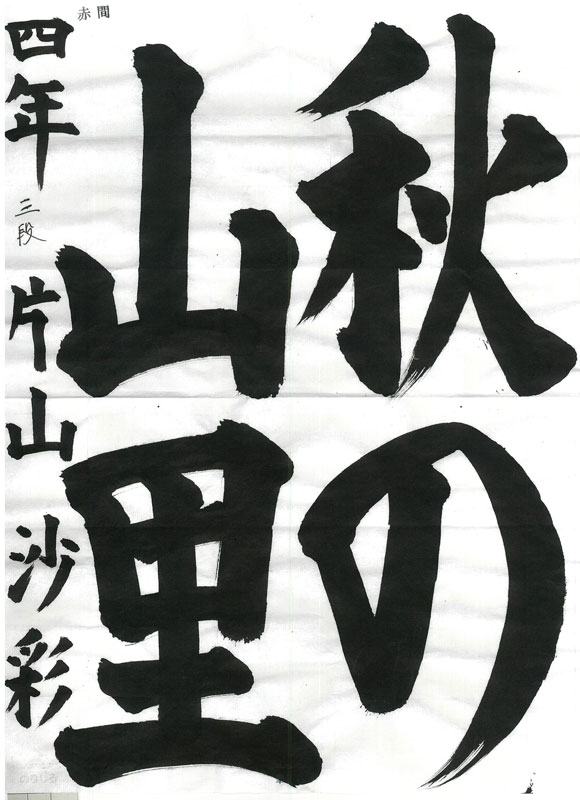 秋の
山里
赤間
四年 三段 片山沙彩